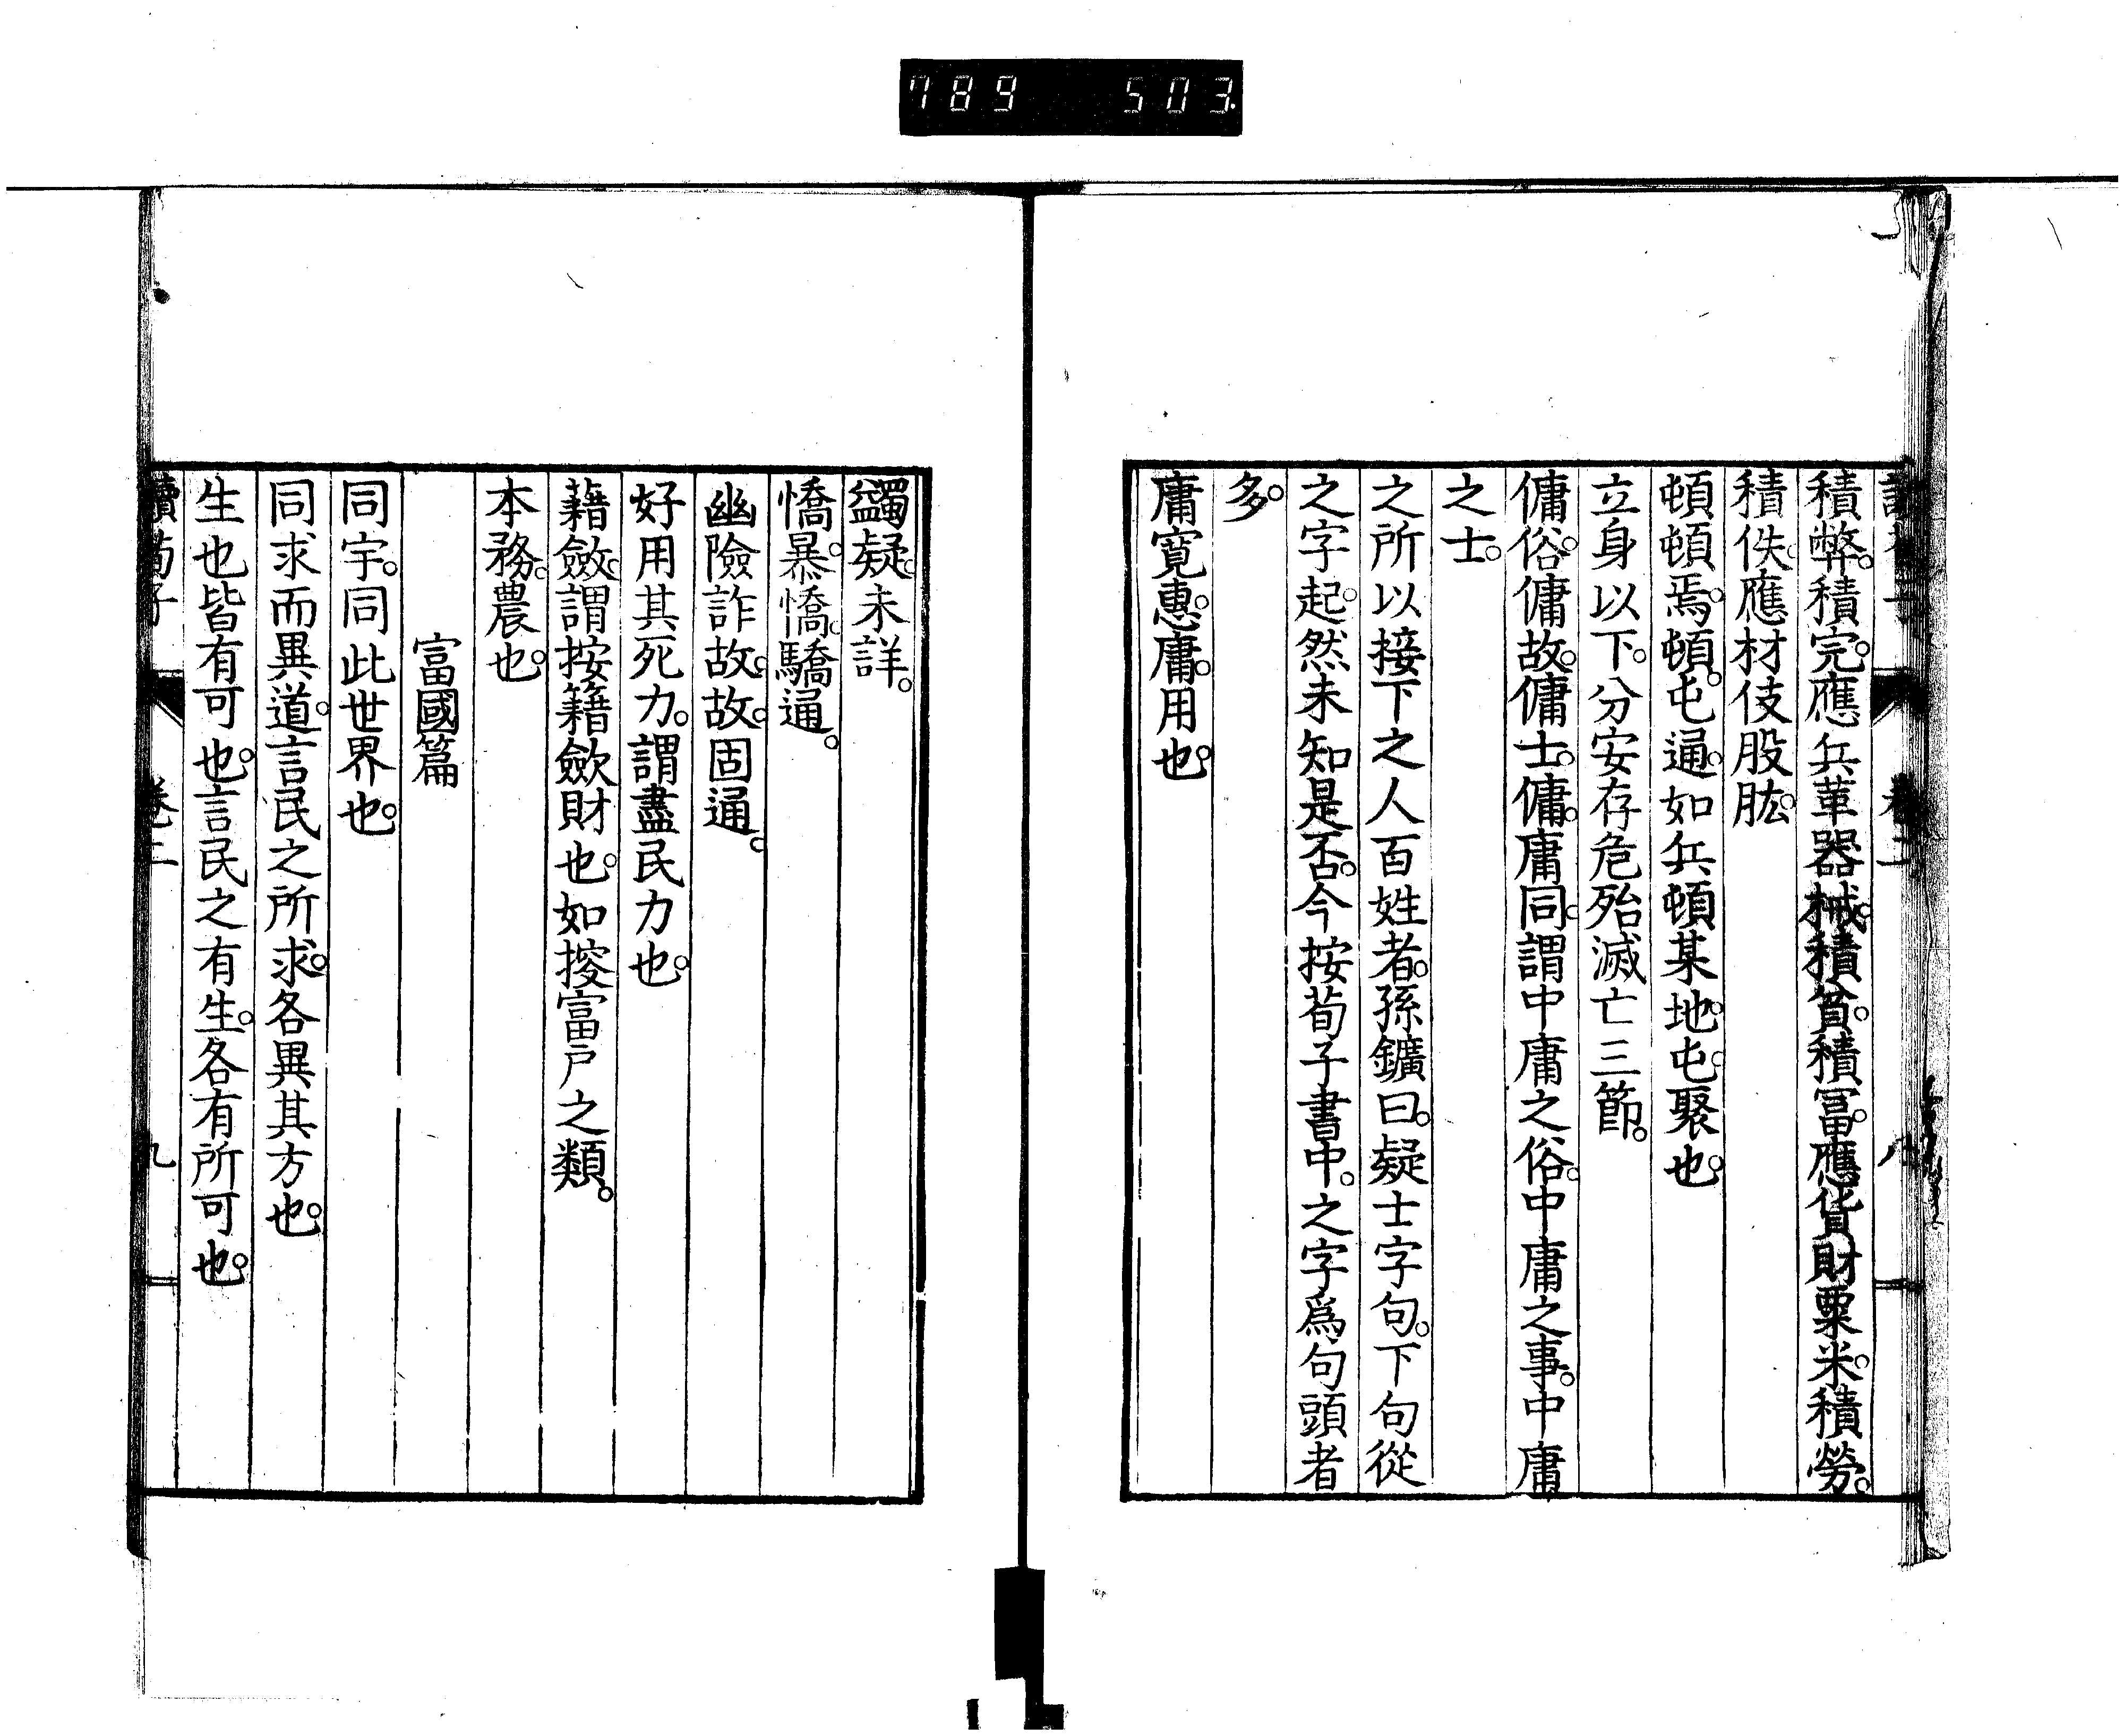 789 503
積弊。積完。應兵革器械。積貧。積冨。應貨財粟米。積勞。
積佚。應材伎股肱。
頓頓焉。頓。屯通。如兵頓某地。屯聚也。
立身以下。分安存危殆滅亡三節。
傭俗。傭故。傭士。傭。庸同。謂中庸之俗。中庸之事。中庸
之士。
之所以接下之人百姓者。孫鑛曰。疑士字句。下句從
之字起。然未知是否。今按荀子書中。之字爲句頭者
多。
庸寛惠。庸。用也。
蠲疑。未詳。
憍暴。憍。驕通。
幽險詐故。故。固通。
好用其死力。謂盡民力也。
藉斂。謂按籍歛財也。如按富戸之類。
本務。農也。
富國篇
同宇。同此世界也。
同求而異道。言民之所求。各異其方也。
生也皆有可也。言民之有生。各有所可也。
讀荀子 卷二 九